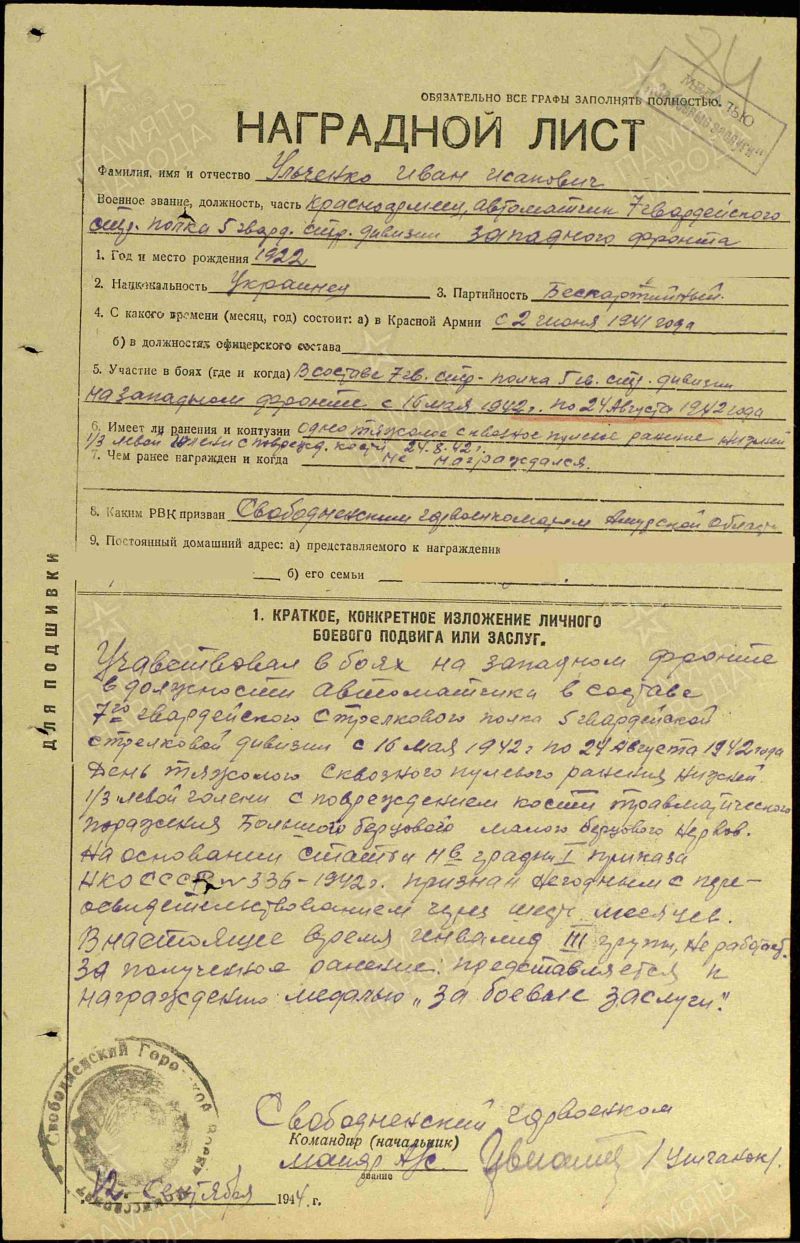 84
МЕДАЛЬЮ
"За боевые заслуги"
ОБЯЗАТЕЛЬНО ВСЕ ГРАФЫ ЗАПОЛНЯТЬ ПОЛНОСТЬЮ.
НАГРАДНОЙ ЛИСТ
Фамилия, имя и отчество Ульченко Иван Исапович
Военное звание, должность, часть Красноармеец, автоматчик 7 гвардейского
стр. полка 5 гвард. стр. дивизии Западного фронта
1. Год и место рождения 1922
2. Национальность Украинец 3. Партийность Беспартийный.
4. С какого времени (месяц, год) состоит: а) в Красной Армии с 2 июня 1941 года
б) в должностях офицерского состава
5. Участие в боях (где и когда) В составе 7 гв. стр. полка 5 гв. стр. дивизии
на западном фронте с 16 мая 1942 г. по 24 Августа 1942 года
6. Имеет ли ранения и контузии одно тяжолое сквозное пулевое ранение нижней
1/3 левой голени с поврежд. кости 24.8.42 г.
7. Чем ранее награжден и когда не награждался.
8. Каким РВК призван Свободненским горвоенкоматом Амурской области
9. Постоянный домашний адрес: а) представляемого к награждению
б) его семьи
ДЛЯ ПОДШИВКИ
1. КРАТКОЕ, КОНКРЕТНОЕ ИЗЛОЖЕНИЕ ЛИЧНОГО
БОЕВОГО ПОДВИГА ИЛИ ЗАСЛУГ.
Учавствовал в боях на западном фронте
в должности автоматчика в составе
7го гвардейского стрелкового полка 5 гвардейской
стрелковой дивизии с 16 мая 1942 г по 24 Августа 1942 года
День тяжолого сквозного пулевого ранения нижней
1/3 левой голени с повреждением кости травматического
поражения Большого берцового малого берцового нервов.
На основании статьи графы I приказа
НКО СССР № 336-1942 г. признан негодным с пере-
освидетельствованием через шесть месяцев.
В настоящее время инвалид III группы, не работает.
За полученное ранение представляется к
награждению медалью "За боевые заслуги".
Свободненский Городской
Свободненский горвоенком
Командир (начальник)
майор
звание
12 Сентября 1944 г.
ПАМЯТЬ
НАРОДА